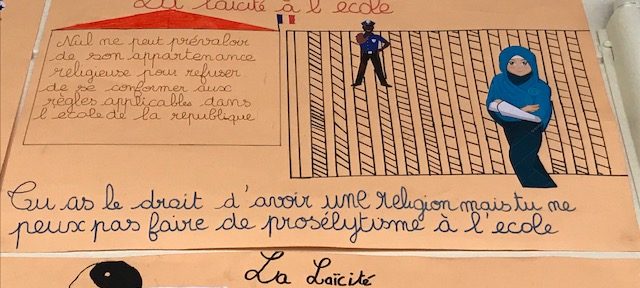 La laïcité à l'école
Nul ne peut prévaloir
de son appartenance
religieuse pour refuser
de se conformer aux
règles applicables dans
l'école de la republique
Tu as le droit d'avoir une religion mais tu ne
peux pas faire de prosélytisme à l'ecole
La Laïcité